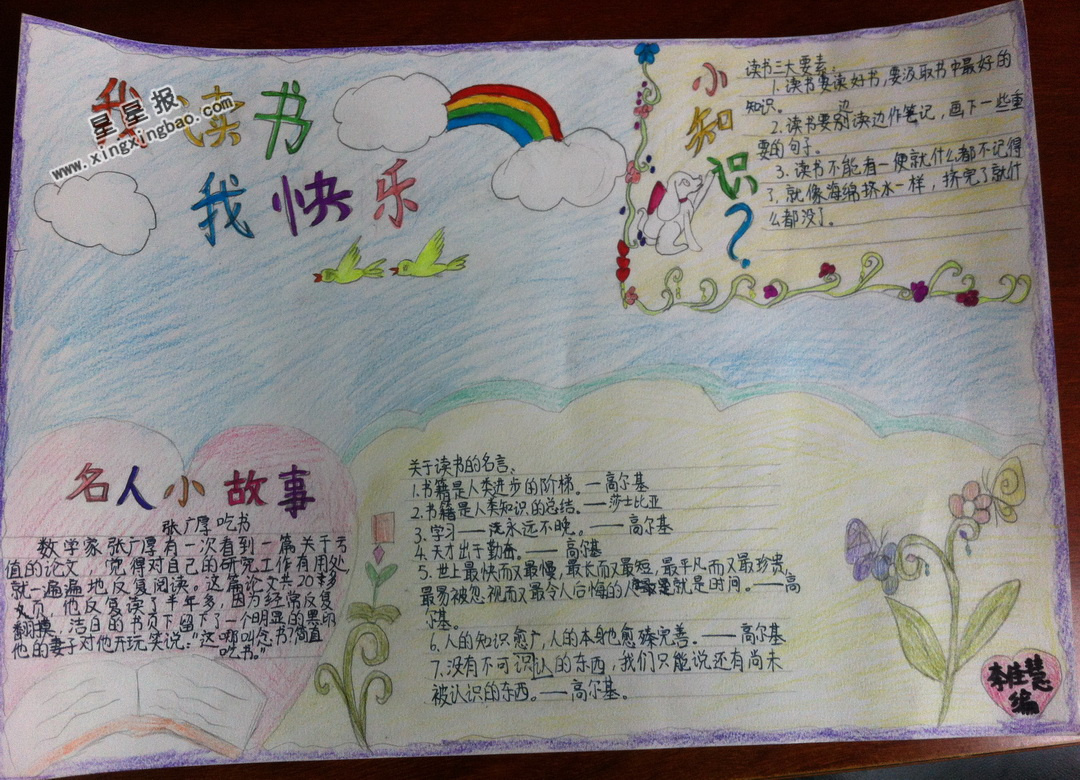 我读书
我快乐
星星报
www.xingxingbao.com
小知识?
读书三大要素:
1.读书要读好书,要汲取书中最好的
知识。
2.读书要边读边作笔记,画下一些重
要的句子。
3.读书不能看一便就什么都不记得
了,就像海绵挤水一样,挤完了就什
么都没了。
名人小故事
张广厚吃书
数学家张广厚有一次看到一篇关于亏
值的论文,觉得对自己的研究工作有用处,
就一遍遍地反复阅读。这篇论文共20多
页,他反复读了半年多,因为经常反复
翻摸,洁白的书页下留下了一个明显的黑印
他的妻子对他开玩笑说:“这哪叫念书?简直
吃书。”
关于读书的名言、
1.书籍是人类进步的阶梯。—高尔基
2.书籍是人类知识的总结。—莎士比亚
3.学习——永远不晚。——高尔基
4.天才出于勤奋。——高尔基
5.世上最快而又最慢,最长而又最短,最平凡而又最珍贵,
最易被忽视而又最令人后悔的就是时间。——高
尔基。
6.人的知识愈广,人的本身也愈臻完善。——高尔基
7.没有不可认识的东西,我们只能说还有尚未
被认识的东西。——高尔基。
李佳慧
编